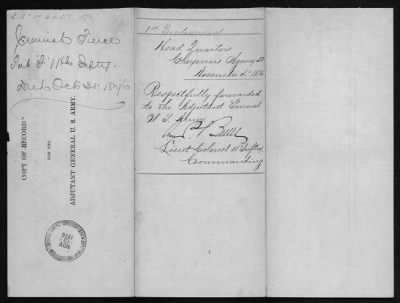 Jeremiah Pierce
Pvt "F" 11th Infty.
Died Oct 24, 1876
COPY OF RECORD
FOR THE
ADJUTANT GENERAL U. S. ARMY.
1st Endorsement
Head Quarters
Cheyenne Agency D.T.
November 4th 1876
Respectfully forwarded
to the Adjutant General
U. S. Army
Lieut Colonel 11 Infty,
Commanding